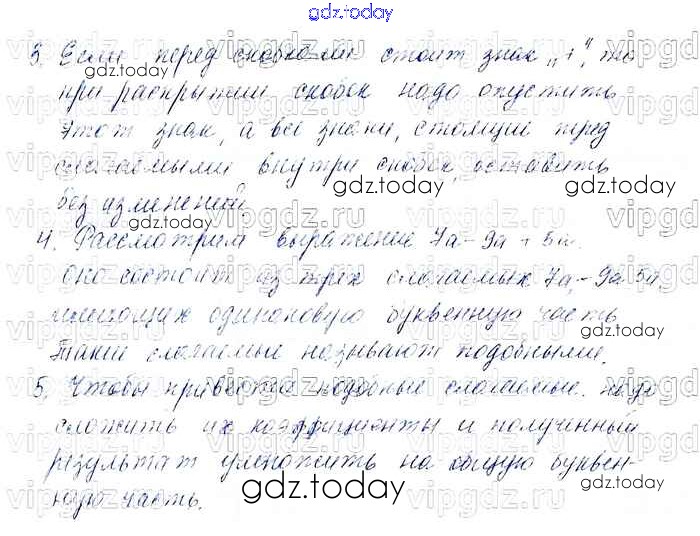 gdz.today
3. Если перед скобками стоит знак „+“, то
при раскрытии скобок надо опустить
этот знак, а все знаки, стоящие перед
слагаемыми внутри скобок, оставить
без изменений.
4. Рассмотрим выражение 7a - 9a + 5a.
оно состоит из трех слагаемых 7a, -9a 5a,
имеющих одинаковую буквенную часть
Такие слагаемые называют подобными.
5. Чтобы привести подобные слагаемые. надо
сложить их коэффициенты и полученный
результат умножить на общую буквен-
ную часть.
gdz.today